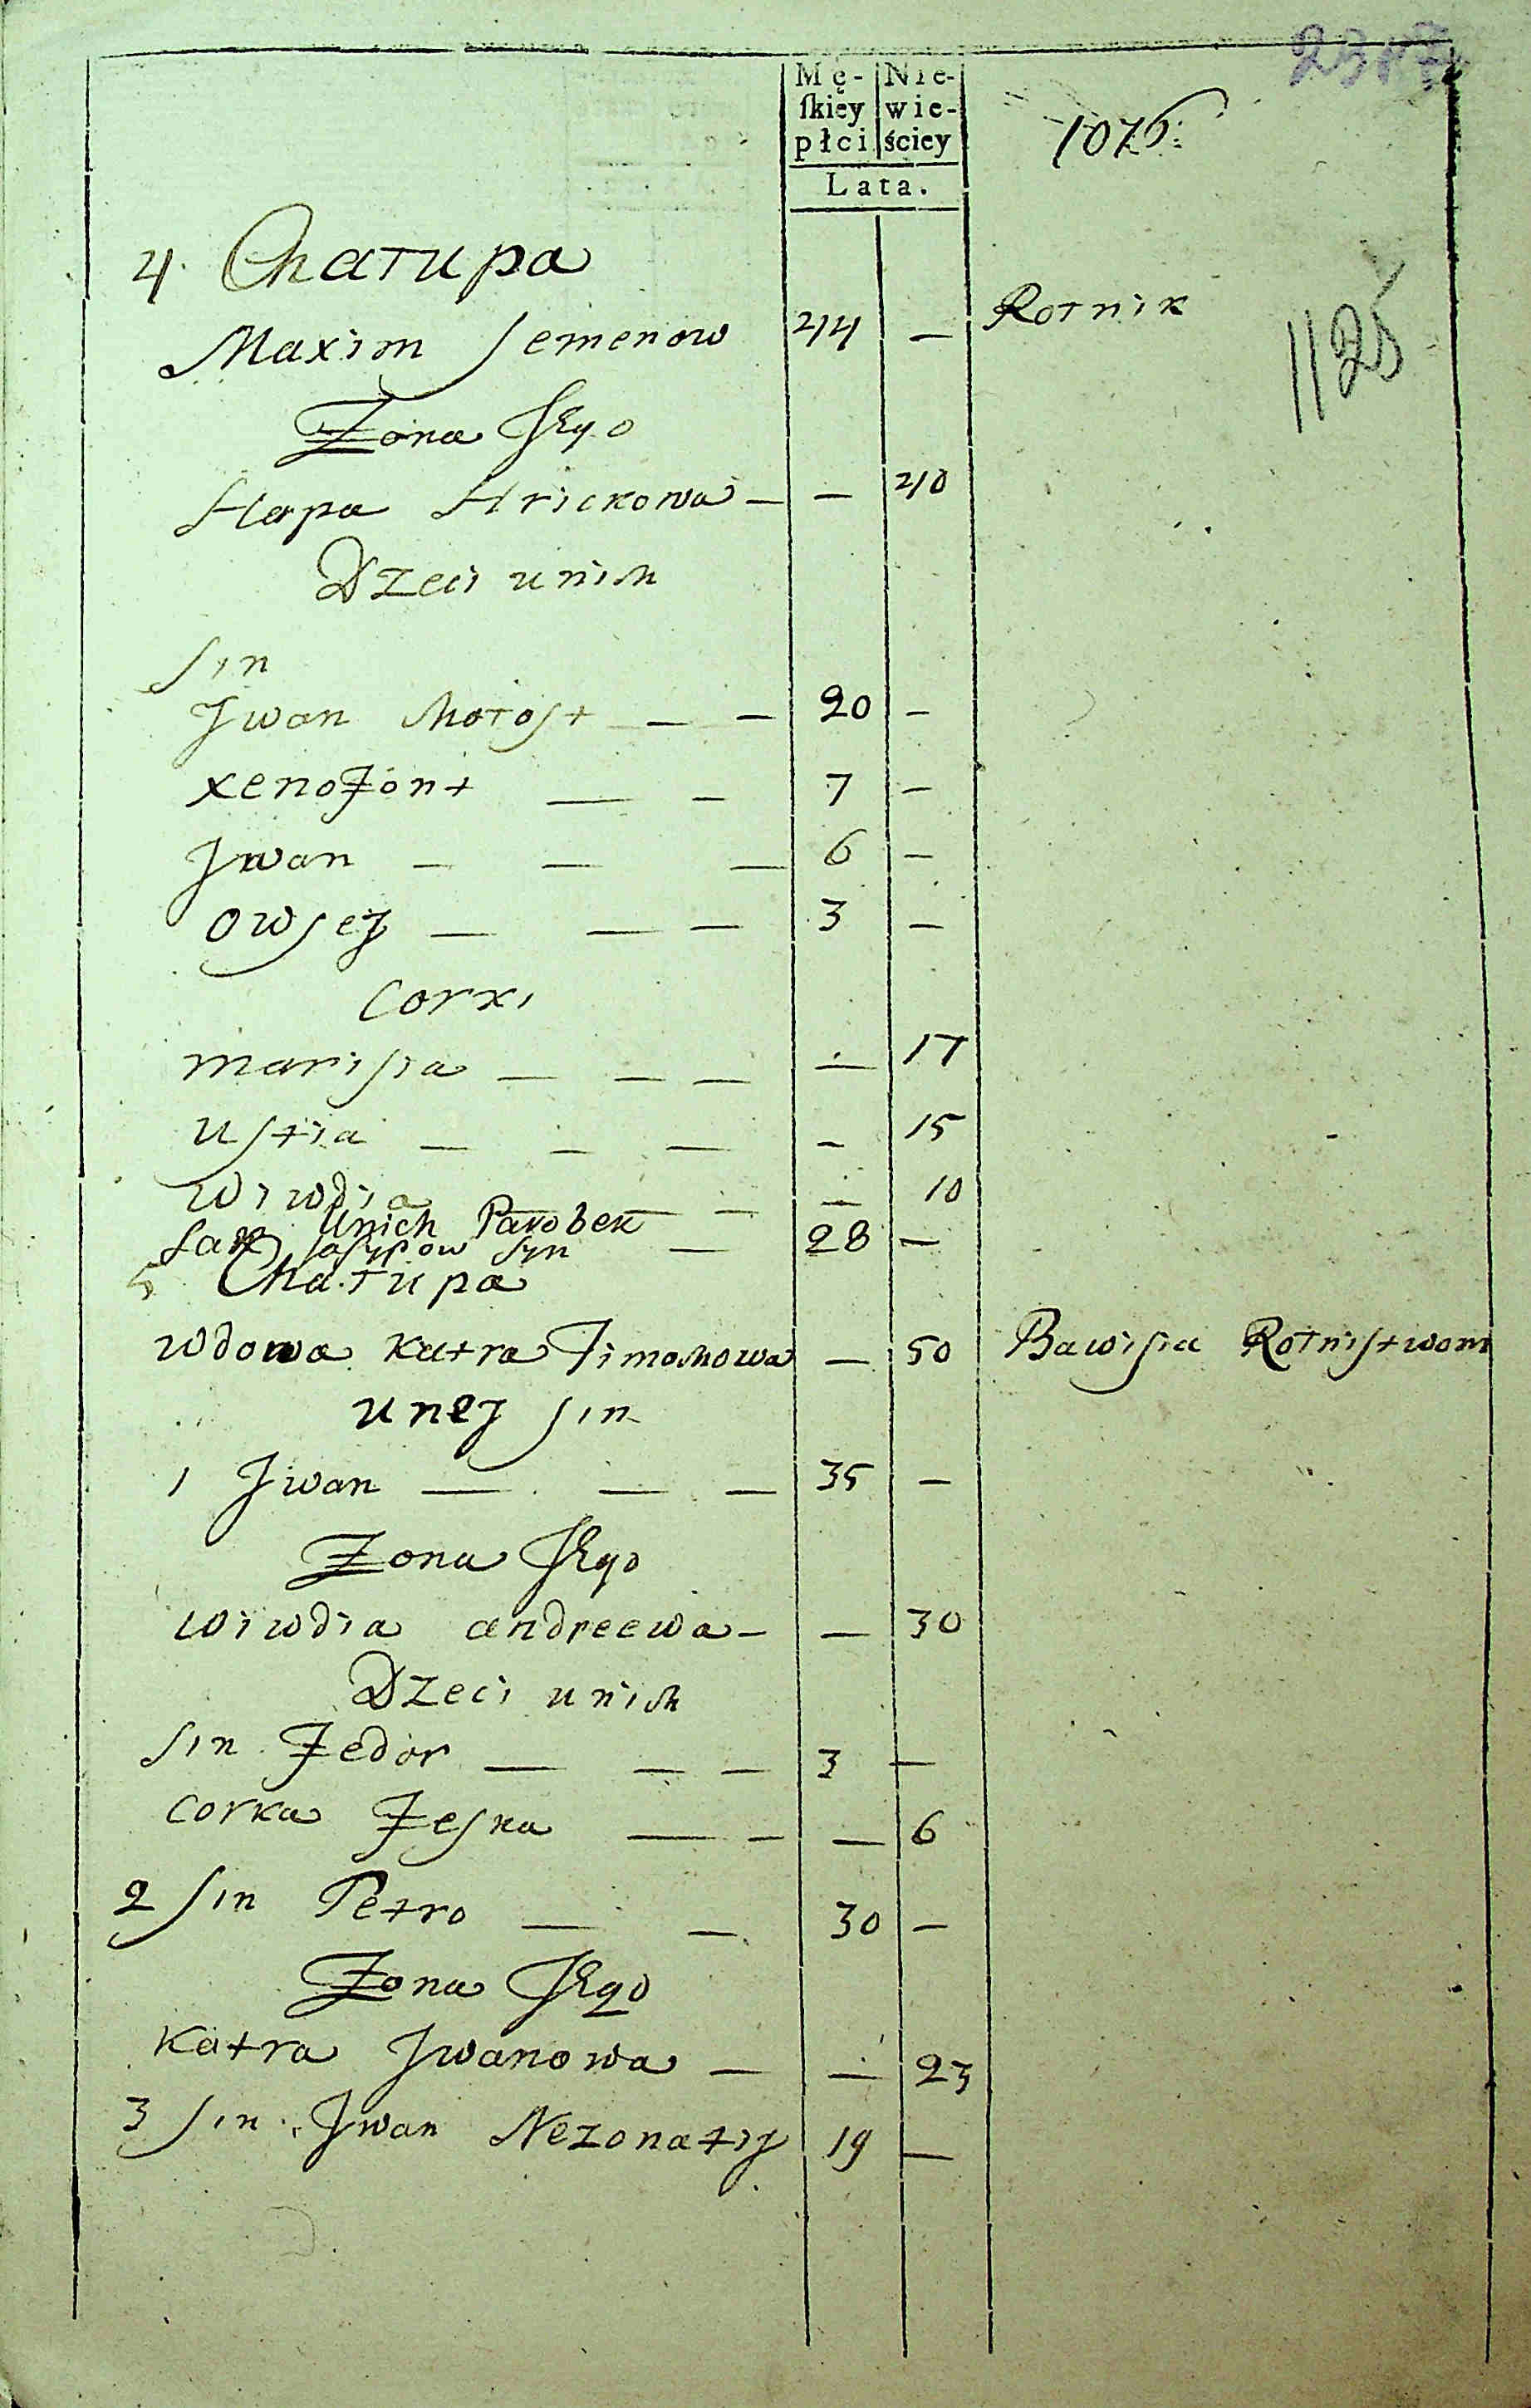 Mę- Nie-
ſkiey wie-
płci ściey
Lata.
1076
1125
4. Chałupa
Maxim Semenow 44 — Rolnik
Zona Jego
Hapa Hrickowa — — 40
Dzeci unich
Sin
Jwan chołost — — 20 —
xenofont — — 7 —
Jwan — — — 6 —
owsej — — — 3 —
Corki
marisia — — — — 17
ustia — — — — 15
wiwdia — — — 10
unich Parobek
Josypow Syn — 28 —
5 Chałupa
wdowa Katra Timochowa — 50 Bawisia Rolnistwom
unej sin
1 Jwan — — — 35 —
Zona Jego
wiwdia andreewa — — 30
Dzeci unich
Sin Fedor — — — 3 —
corka Feska — — — 6
2 Sin Petro — — 30 —
Zona Jego
Katra Jwanowa — — 23
3 Sin Jwan Nezonatij 19 —